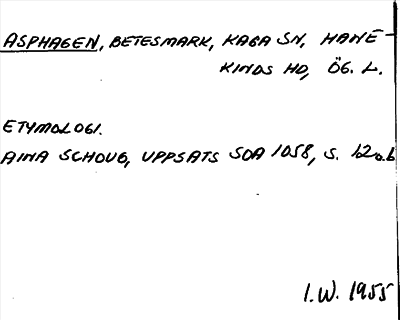 ASPHAGEN, BETESMARK, KAGA SN, HANE-
KINDS HD, ÖG. L.
ETYMOLOGI.
AINA SCHOUG, UPPSATS SOA 1058, S. 12a.b
I.W. 1955